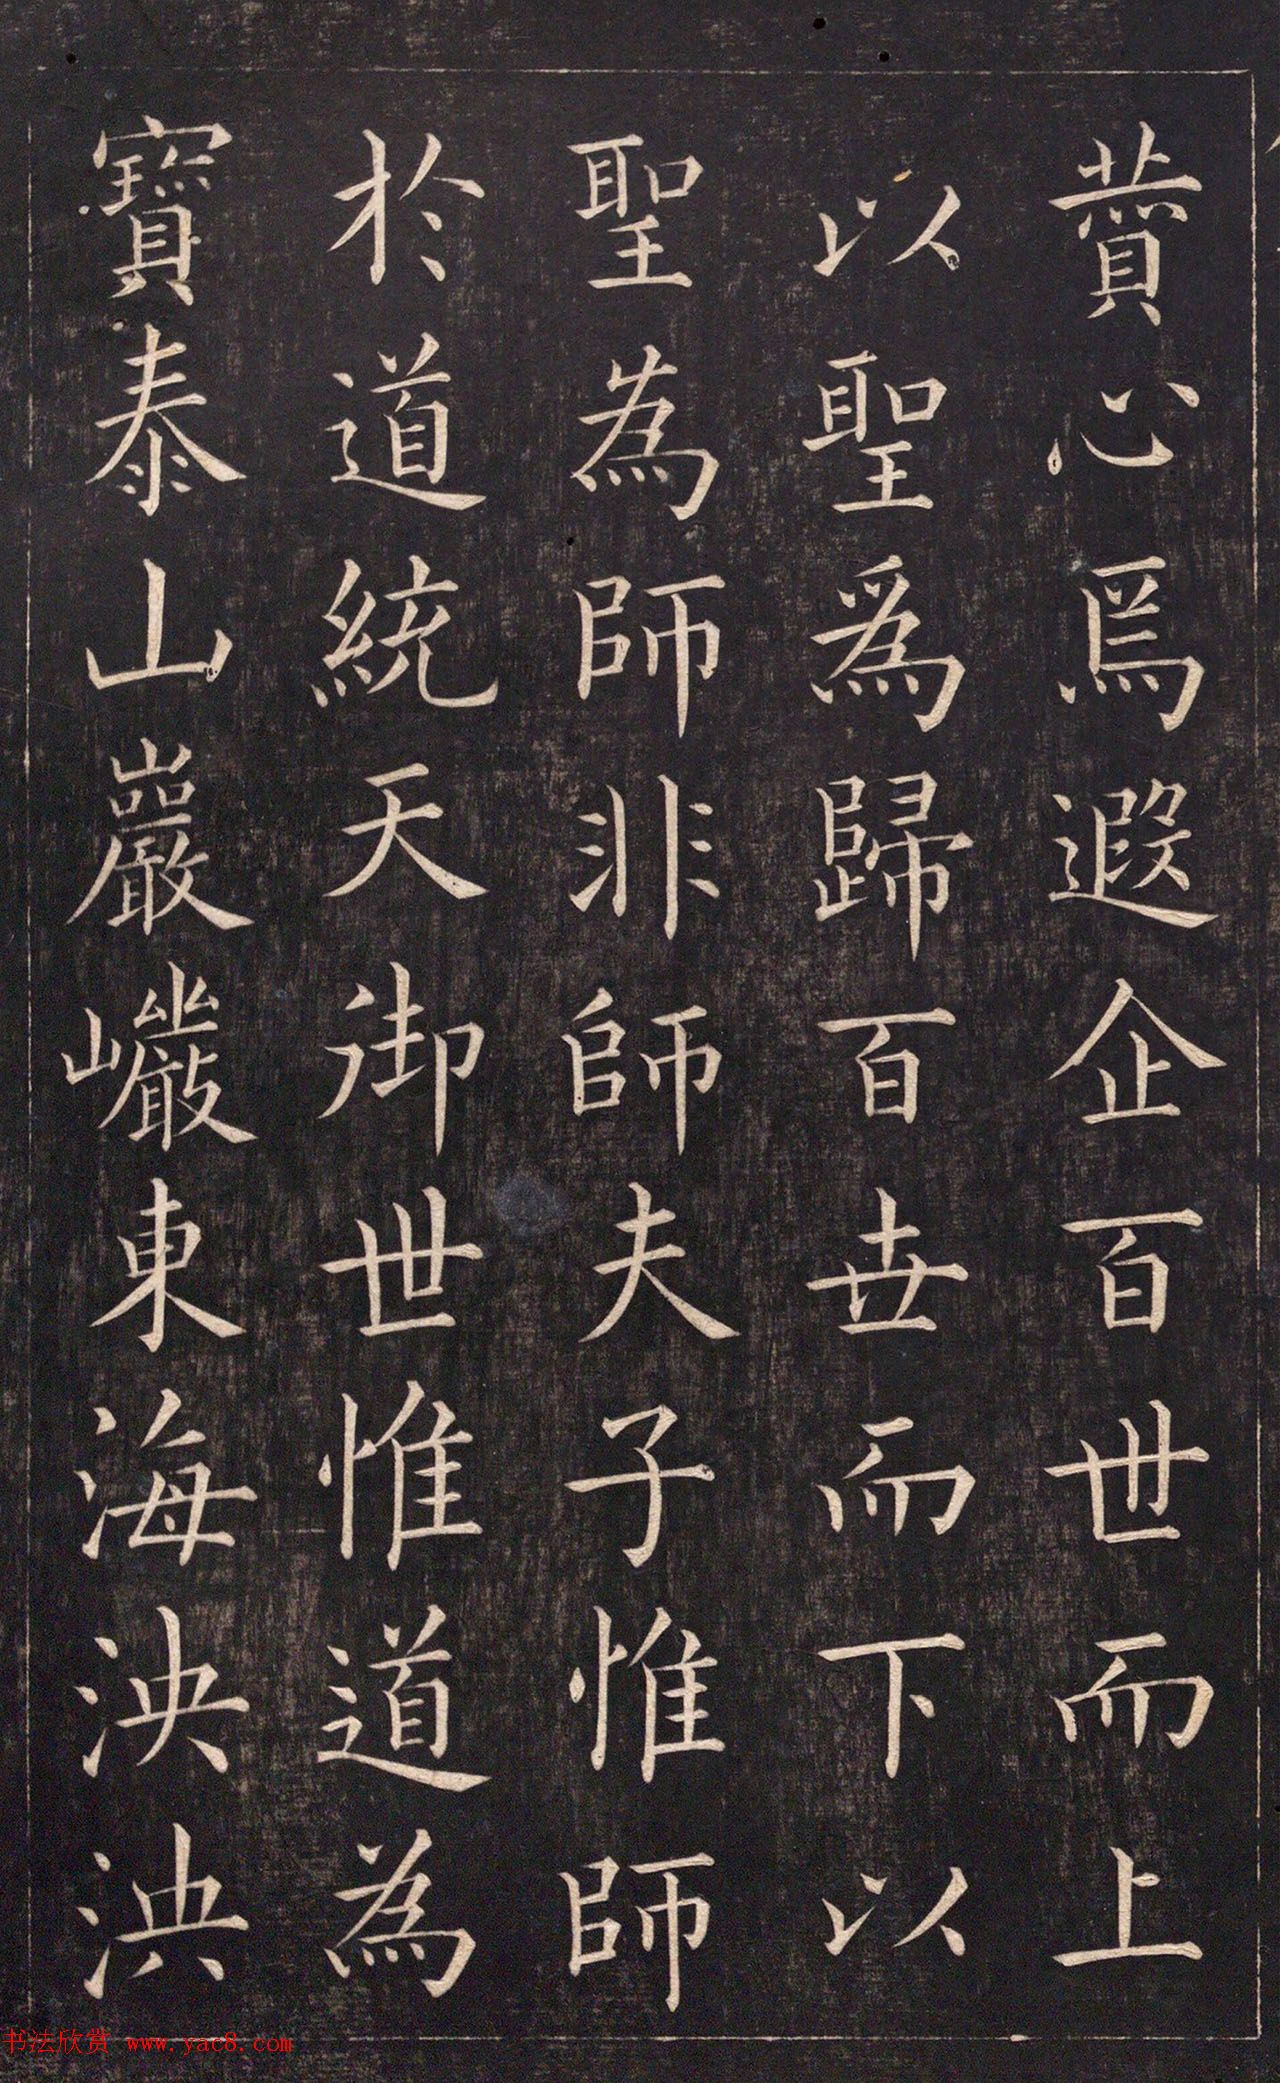 贊心焉遐企百世而上
以聖爲歸百世而下以
聖為師非師夫子惟師
於道統天御世惟道為
寶泰山巖巖東海泱泱
书法欣赏 www.yac8.com